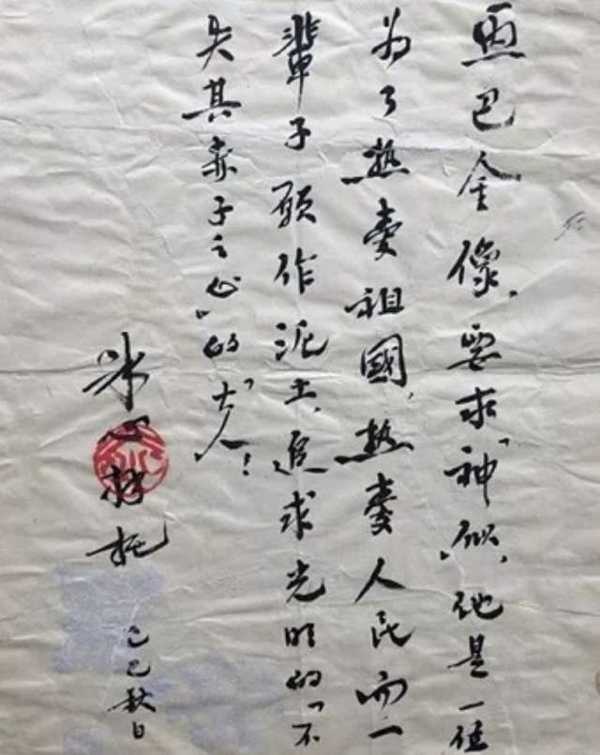 画巴金像，要求「神似」，他是一位
为了热愛祖國，热愛人民而一
輩子願作泥土，追求光明的「不
失其赤子之心」的「大人」！
冰心拜托
己巳秋日